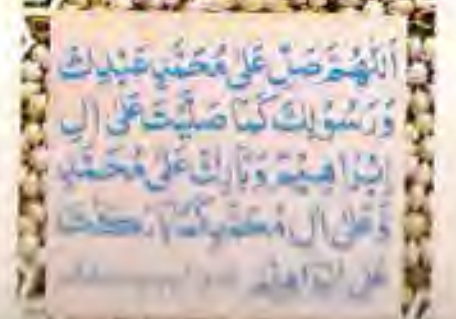 اَللّٰهُمَّ صَلِّ عَلٰی مُحَمَّدٍ عَبْدِكَ
وَرَسُوْلِكَ كَمَا صَلَّيْتَ عَلٰی اٰلِ
اِبْرَاهِيْمَ وَبَارِكْ عَلٰی مُحَمَّدٍ
وَّعَلٰی اٰلِ مُحَمَّدٍ كَمَا بَارَكْتَ
عَلٰی اِبْرَاهِيْمَ